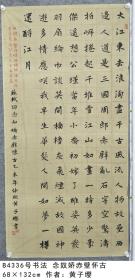 大江東去浪淘盡千古風流人物故壘西
邊人道是三國周郎赤壁亂石穿空驚濤
拍岸捲起千堆雪江山如畫一時多少豪
傑遙想公瑾當年小喬初嫁了雄姿英發
羽扇綸巾談笑間檣櫓灰飛煙滅故國神
遊多情應笑我早生華髮人生如夢一尊
還酹江月
蘇軾詞念奴嬌赤壁懷古
B4336号书法 念奴娇赤壁怀古
68×132cm 作者：黄子瓔